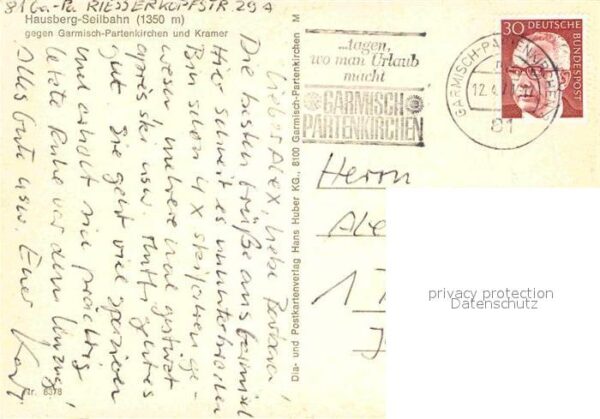 81 Ga.-Pa. RIESSERKOPFSTR. 29A
Hausberg-Seilbahn (1350 m)
gegen Garmisch-Partenkirchen und Kramer
Lieber Alex, liebe
Die besten Grüße aus
Hier schneit es ununterbrochen
Bin schon 4 x skifahren ge-
wesen, mehrere mal gestürzt
après ski usw. Mutti geht es
gut. Sie geht viel spazieren
und erholt sich prächtig
letzte Ruhe vor dem Umzug!
Alles Gute usw. Euer
Nr. 8378
Dia- und Postkartenverlag Hans Huber KG., 8100 Garmisch-Partenkirchen M
...tagen,
wo man Urlaub
macht
GARMISCH
PARTENKIRCHEN
GARMISCH-PARTENKIRCHEN
12.4.7
81
30 DEUTSCHE
BUNDESPOST
Herrn
Ale
1
privacy protection
Datenschutz